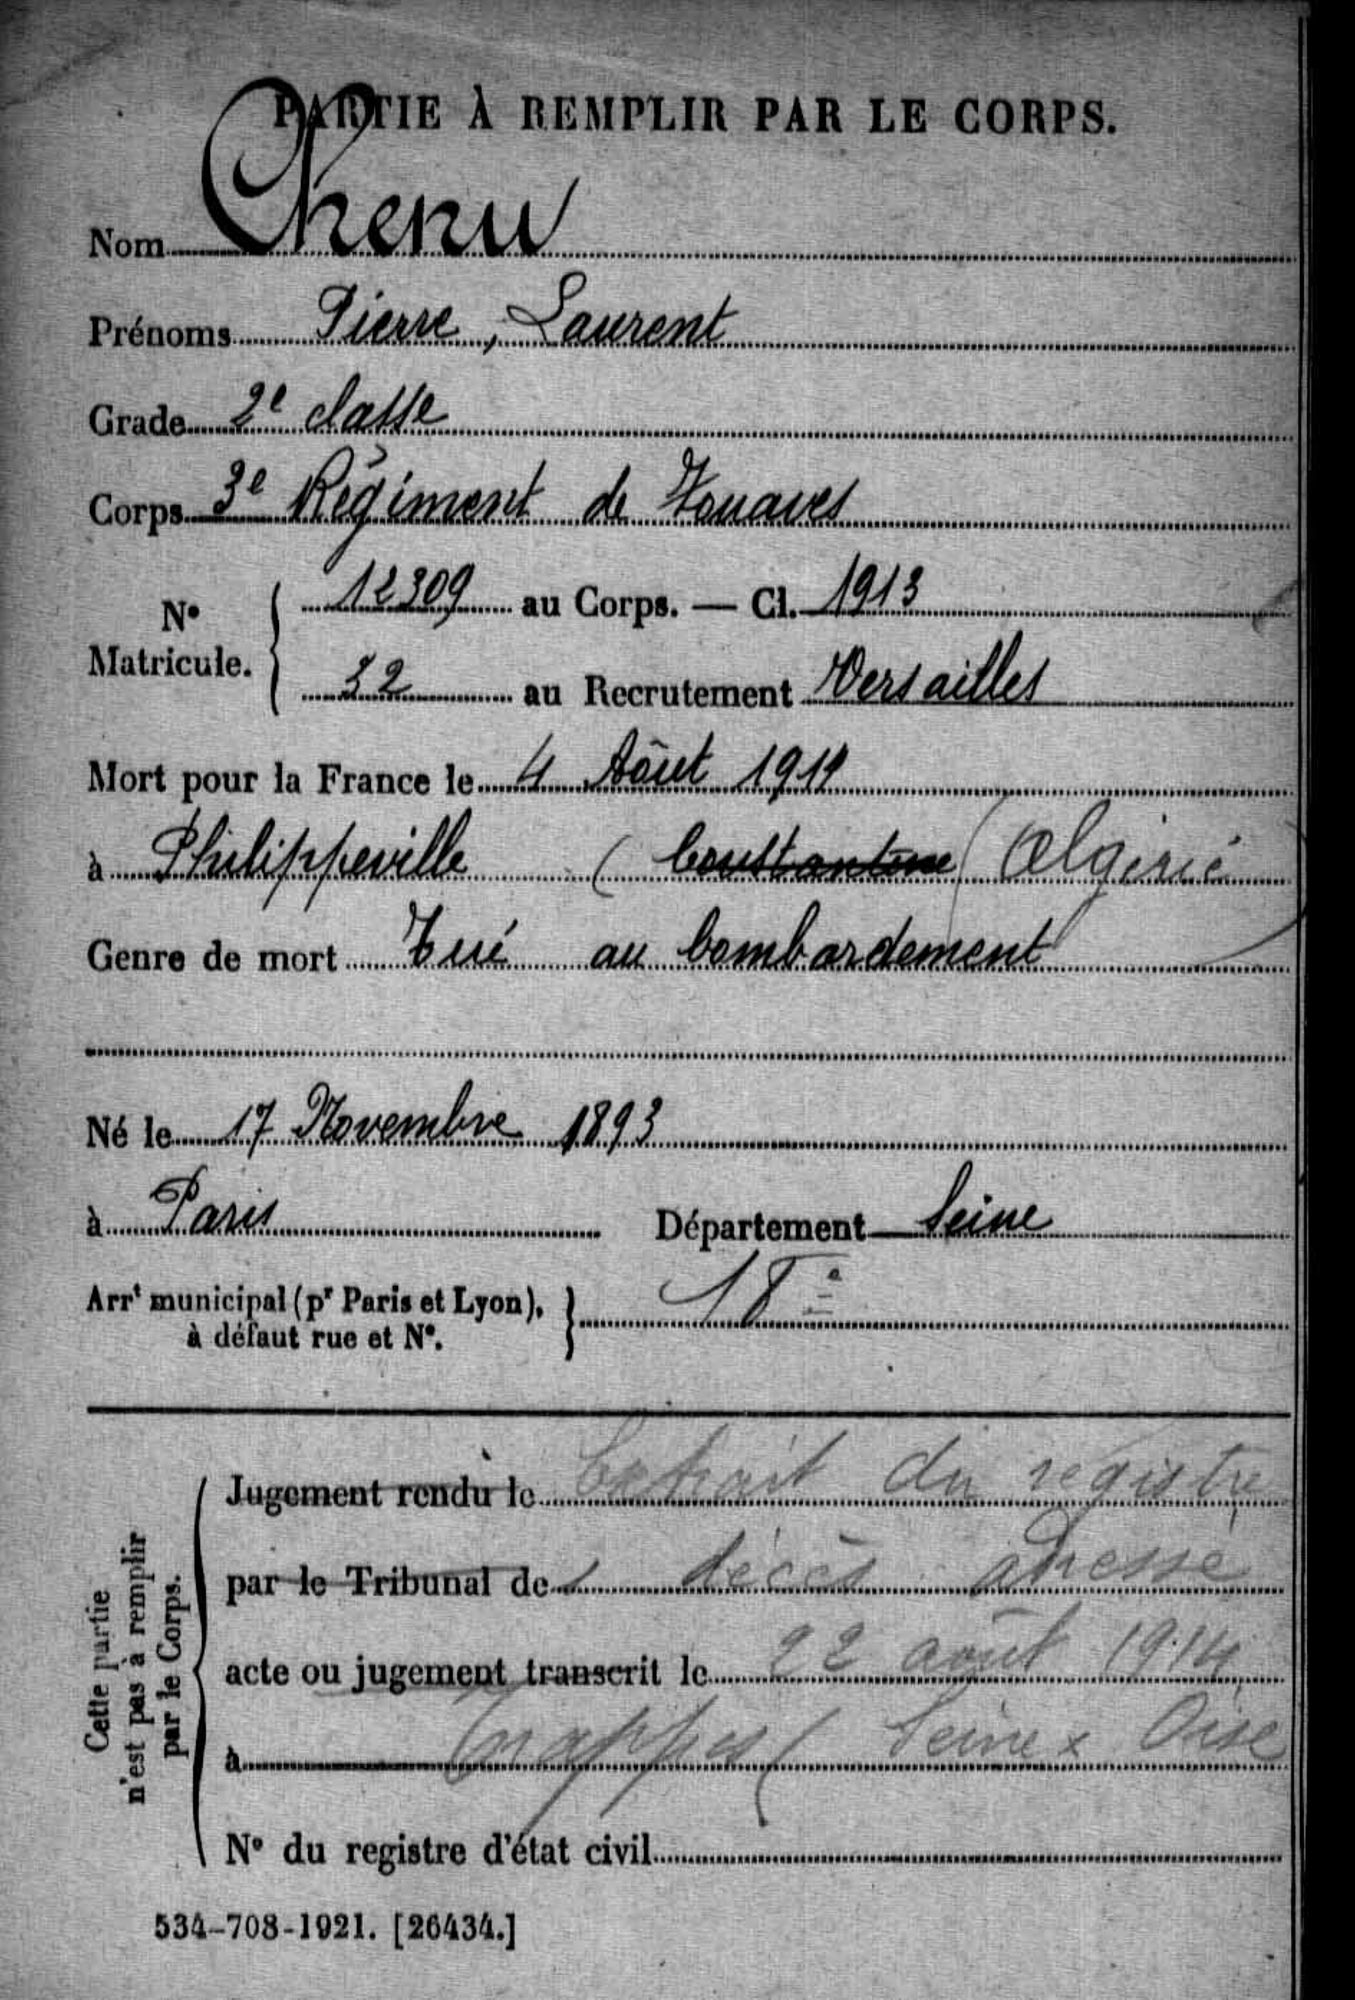 PARTIE À REMPLIR PAR LE CORPS.
Nom Chenu
Prénoms Pierre, Laurent
Grade 2e classe
Corps 3e Régiment de Zouaves
N° Matricule. 12309 au Corps. — Cl. 1913
32 au Recrutement Versailles
Mort pour la France le 4 Août 1914
à Philippeville (Constantine (Algérie
Genre de mort Tué au bombardement
Né le 17 Novembre 1893
à Paris Département Seine
Arrt municipal (pr Paris et Lyon), à défaut rue et N°. 18e
Cette partie n'est pas à remplir par le Corps.
Jugement rendu le Extrait du registre
par le Tribunal de décès adressé
acte ou jugement transcrit le 22 août 1914
à Trappes (Seine x Oise
N° du registre d'état civil
534-708-1921. [26434.]